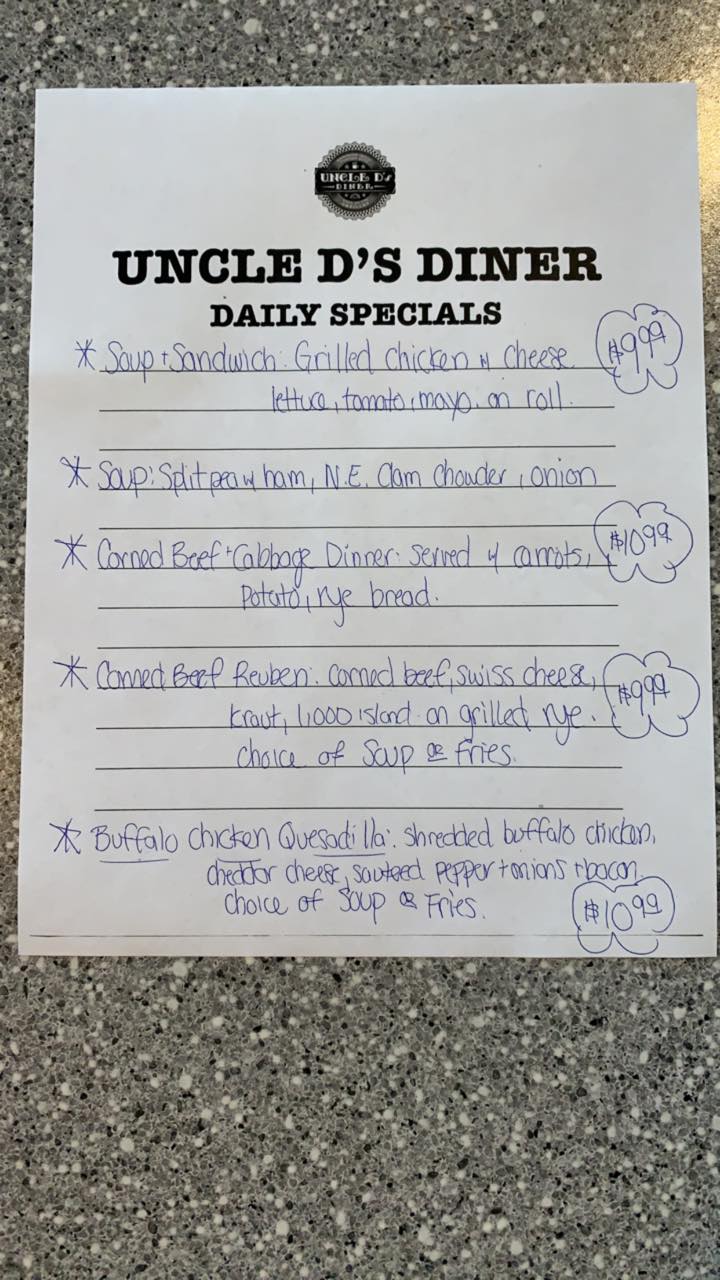 UNCLE D's
DINER
UNCLE D'S DINER
DAILY SPECIALS
* Soup + Sandwich: Grilled Chicken w cheese $9.99
lettuce, tomato, mayo. on roll.
* Soup: Split pea w ham, N.E. Clam Chowder, onion
* Corned Beef + Cabbage Dinner: served w carrots, $10.99
Potato, rye bread.
* Corned Beef Reuben: corned beef, swiss cheese, $9.99
kraut, 1,000 island on grilled rye.
choice of Soup or Fries.
* Buffalo chicken Quesadilla: shredded buffalo chicken,
cheddar cheese, sauteed pepper + onions + bacon.
choice of Soup or Fries. $10.99